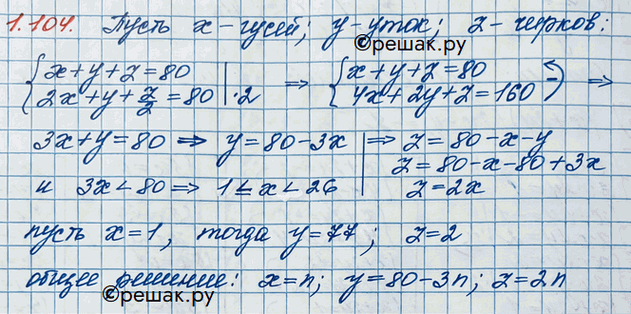 1.104. Пусть x - гусей; y - уток; z - чирков:
©решак.ру
{ x+y+z=80
2x+y+z/2=80 | ·2 ⇒ { x+y+z=80
4x+2y+z=160 ) - ⇒
3x+y=80 ⇒ y=80-3x | ⇒ z=80-x-y
z=80-x-80+3x
и 3x<80 ⇒ 1≤x<26 | z=2x
пусть x=1, тогда y=77; z=2
общее решение: x=n; y=80-3n; z=2n
©решак.ру